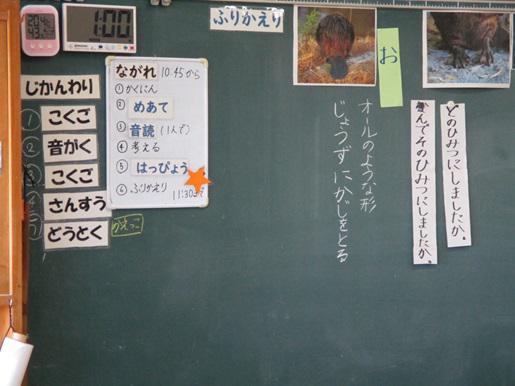 1:00
ふりかえり
お
どのひみつにしましたか。
なんでそのひみつにしましたか。
オールのような形
じょうずにかじをとる
ながれ 10:45から
①かくにん
② めあて
③ 音読 (1人で)
④ 考える
⑤ はっぴょう
⑥ ふりかえり
11:30まで
じかんわり
① こくご
② 音がく
③ こくご
④ さんすう
⑤ どうとく